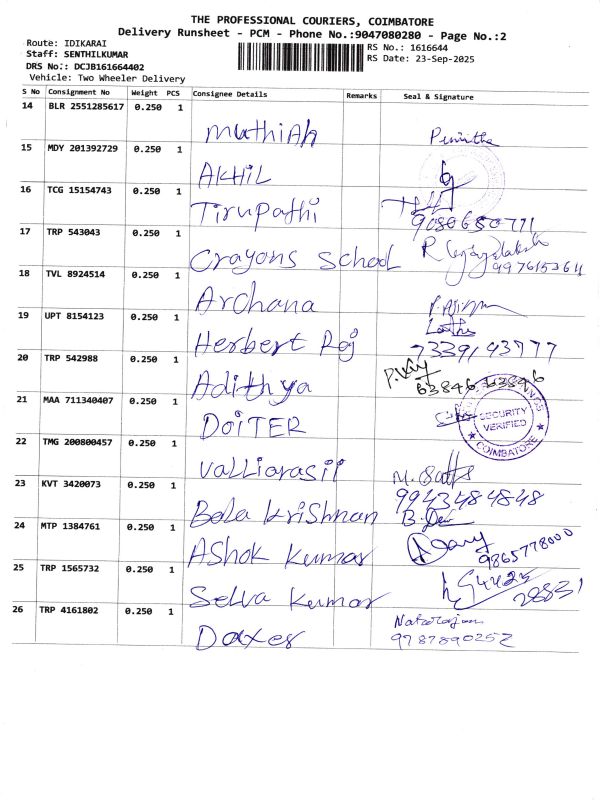 THE PROFESSIONAL COURIERS, COIMBATORE
Delivery Runsheet - PCM - Phone No.:9047080280 - Page No.:2
Route: IDIKARAI
RS No.: 1616644
Staff: SENTHILKUMAR
RS Date: 23-Sep-2025
DRS No.: DCJB161664402
Vehicle: Two Wheeler Delivery
S No Consignment No Weight PCS Consignee Details Remarks Seal & Signature
14 BLR 2551285617 0.250 1
Muthiah
15 MDY 201392729 0.250 1
AKHIL
16 TCG 15154743 0.250 1
Tirupathi 9080680771
17 TRP 543043 0.250 1
Crayons School
18 TVL 8924514 0.250 1
Archana
19 UPT 8154123 0.250 1
Herbert Raj 7339143777
20 TRP 542988 0.250 1
Adithya
21 MAA 711340407 0.250 1
DOITER
SECURITY
VERIFIED
COIMBATORE
22 TMG 200800457 0.250 1
Valliarasii
23 KVT 3420073 0.250 1
9943484848
Bala Krishnan
24 MTP 1384761 0.250 1
Ashok Kumar 9865778000
25 TRP 1565732 0.250 1
Selva Kumar
26 TRP 4161802 0.250 1
Natarajan
Daxer 9787890252